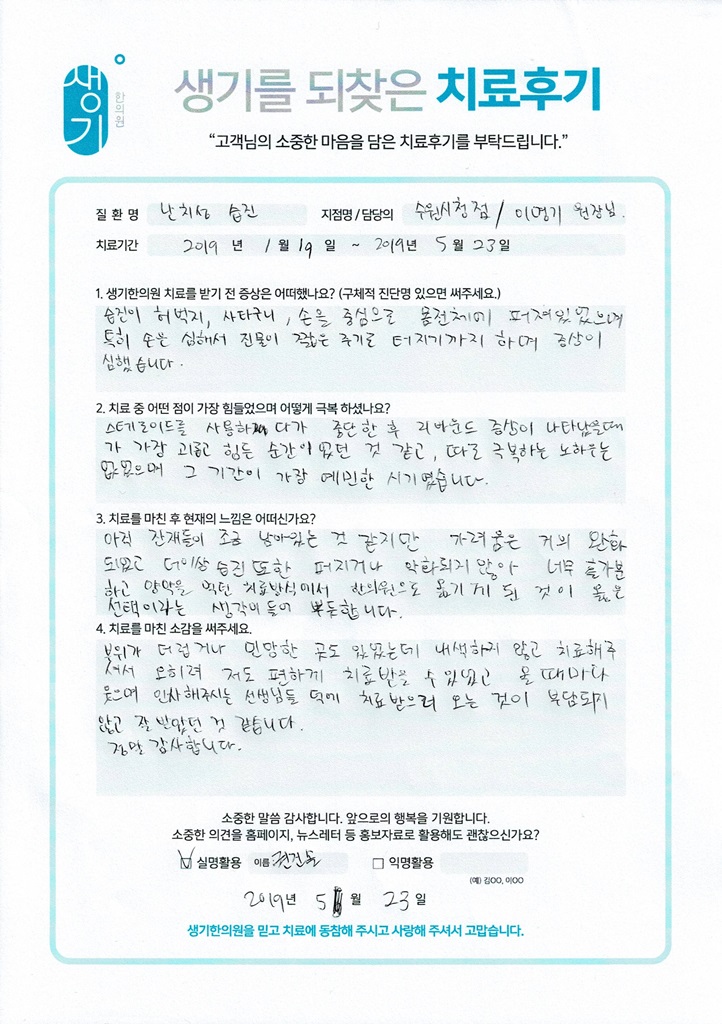 생기
한의원
생기를 되찾은 치료후기
“고객님의 소중한 마음을 담은 치료후기를 부탁드립니다.”
질 환 명 난치성 습진 지점명 / 담당의 수원시청점 / 이명기 원장님.
치료기간 2019 년 1 월 19 일 ~ 2019년 5 월 23 일
1. 생기한의원 치료를 받기 전 증상은 어떠했나요? (구체적 진단명 있으면 써주세요.)
습진이 허벅지, 사타구니, 손을 중심으로 몸전체에 퍼져있었으며
특히 손은 심해서 진물이 짧은 주기로 터지기까지 하며 증상이
심했습니다.
2. 치료 중 어떤 점이 가장 힘들었으며 어떻게 극복 하셨나요?
스테로이드를 사용하다가 중단한 후 리바운드 증상이 나타났을때
가 가장 괴롭고 힘든 순간이었던 것 같고, 따로 극복하는 노하우는
없었으며 그 기간이 가장 예민한 시기였습니다.
3. 치료를 마친 후 현재의 느낌은 어떠신가요?
아직 잔재들이 조금 남아있는 것 같지만 가려움은 거의 완화
되었고 더이상 습진 또한 퍼지거나 악화되지 않아 너무 홀가분
하고 양약을 먹던 치료방식에서 한의원으로 옮기게 된 것이 옳은
선택이라는 생각이 들어 뿌듯합니다.
4. 치료를 마친 소감을 써주세요.
부위가 더럽거나 민망한 곳도 있었는데 내색하지 않고 치료해주
셔서 오히려 저도 편하게 치료받을 수 있었고 올 때마다
웃으며 인사해주시는 선생님들 덕에 치료받으러 오는 것이 부담되지
않고 잘 받았던 것 같습니다.
정말 감사합니다.
소중한 말씀 감사합니다. 앞으로의 행복을 기원합니다.
소중한 의견을 홈페이지, 뉴스레터 등 홍보자료로 활용해도 괜찮으신가요?
실명활용 이름 익명활용
(예) 김OO, 이OO
2019년 5 월 23 일
생기한의원을 믿고 치료에 동참해 주시고 사랑해 주셔서 고맙습니다.